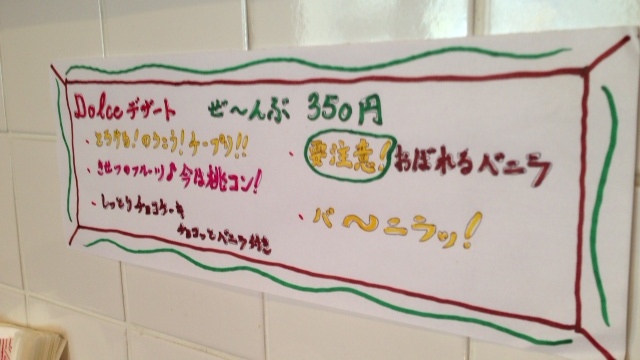 Dolce デザート ぜ〜んぶ 350円
・とろける!のうこう!チープリ!!
・きせつのフルーツ♪今は桃コン!
・しっとりチョコケーキ
チョコっとバニラ付き
・要注意!おぼれるバニラ
・バ〜ニラッ!